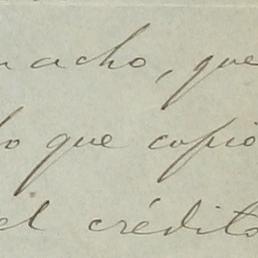 macho, que
lo que copio
el crédito